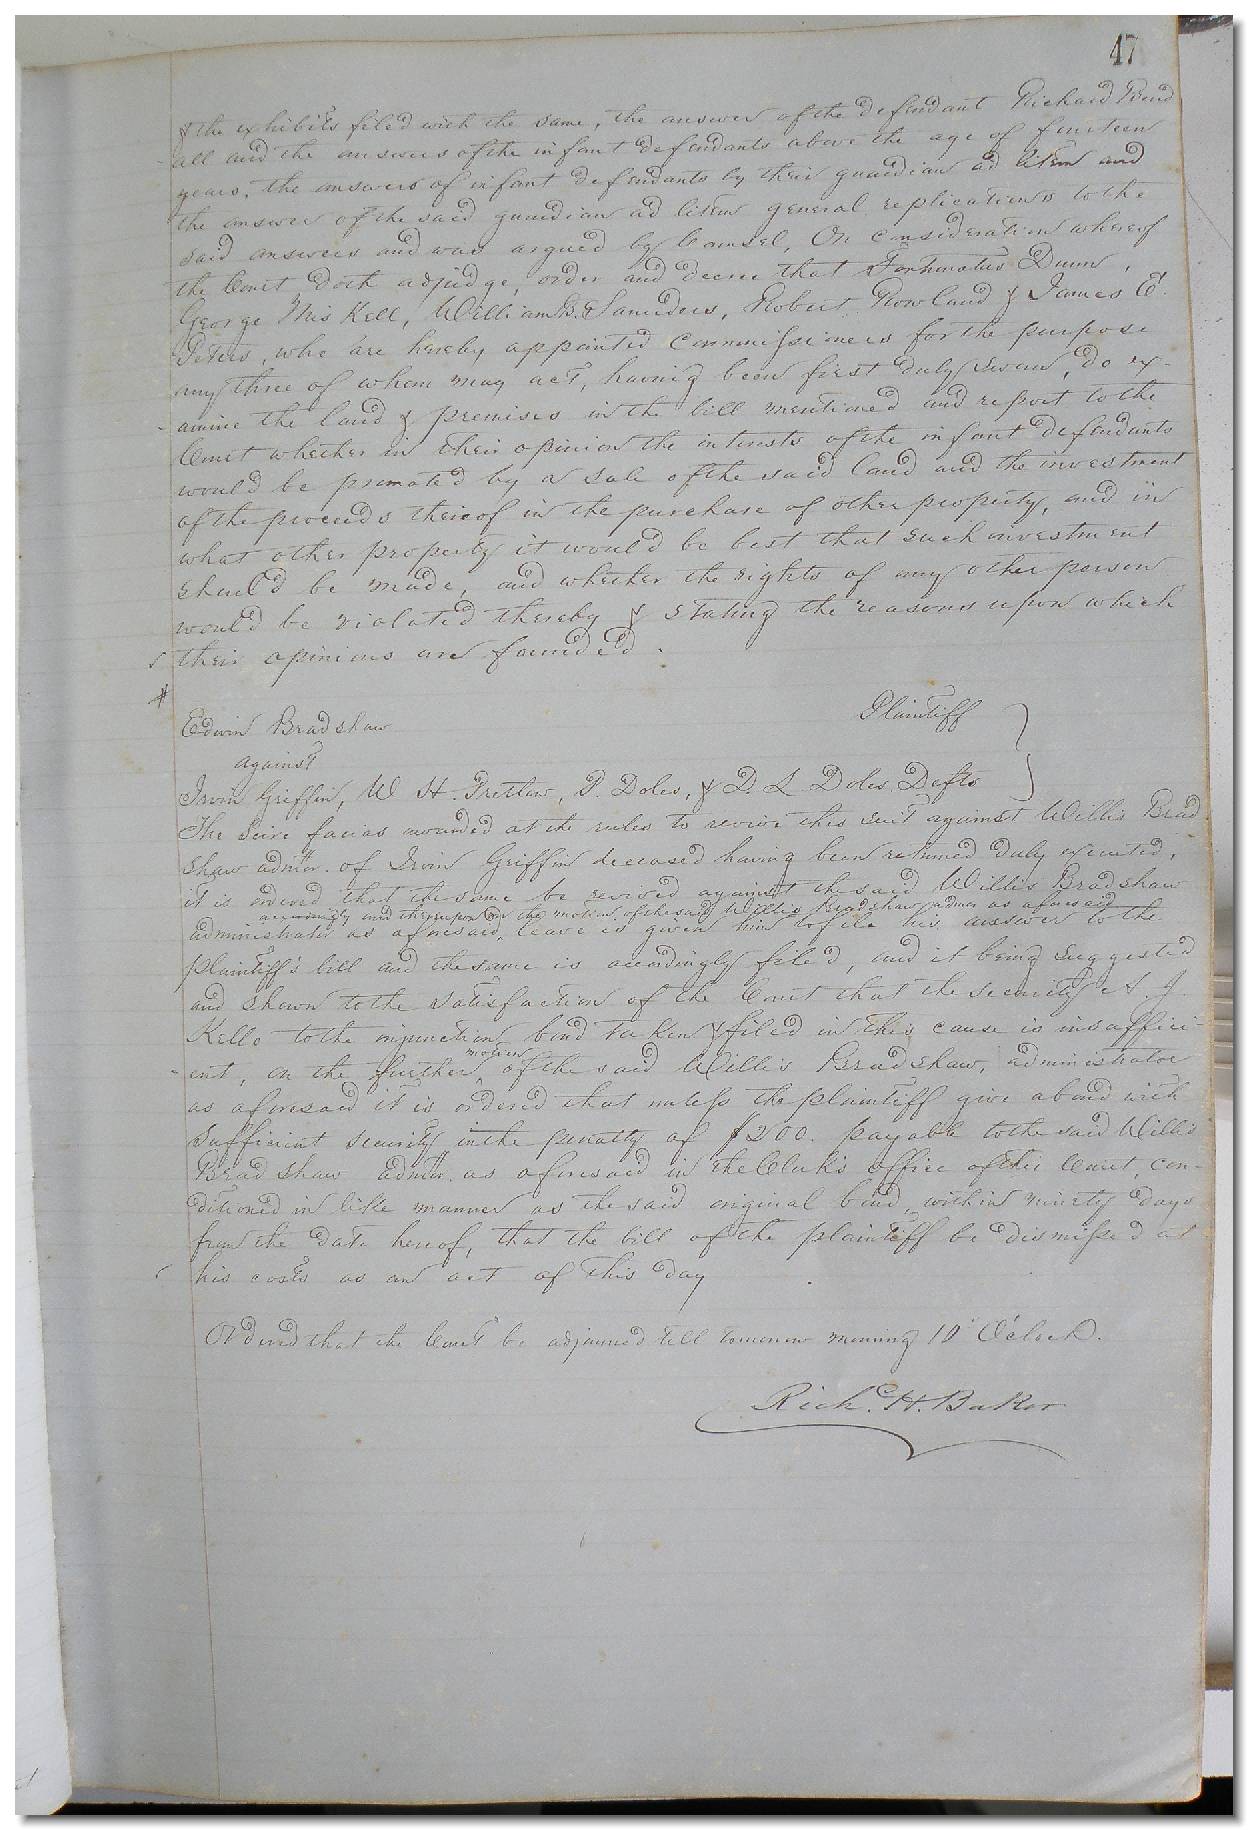 47
& the exhibits filed with the same, the answer of the defendant Richard Bend
all and the answers of the infant defendants above the age of fourteen
years, the answers of infant defendants by their guardian ad litem and
the answer of the said guardian ad litem general replications to the
said answers and was argued by Counsel, On consideration whereof
the Court doth adjudge, order and decree that Fortunatus Dunn,
George Mis Kell, William B. Saunders, Robert Rowland & James E.
Peters, who are hereby appointed commissioners for the purpose
any three of whom may act, having been first duly sworn, do ex-
amine the land & premises in the bill mentioned and report to the
Court whether in their opinion the interests of the infant defendants
would be promoted by a sale of the said land and the investment
of the proceeds thereof in the purchase of other property, and in
what other property it would be best that such investment
should be made, and whether the rights of any other person
would be violated thereby & stating the reasons upon which
their opinions are founded.
Edwin Bradshaw Plaintiff
against
Irvin Griffin, W H. Pretlow, P. Doles, & D. L Doles Defts
The Scire facias awarded at the rules to revive this suit against Willis Brad
shaw admr. of Irvin Griffin deceased having been returned duly executed,
it is ordered that the same be revived against the said Willis Bradshaw
accordingly and thereupon on the motion of the said Willis Bradshaw admr as aforesaid
administrator as aforesaid, leave is given him to file his answer to the
plaintiff's bill and the same is accordingly filed, and it being suggested
and shewn to the satisfaction of the Court that the security A J
Kello to the injunction bond taken & filed in this cause is insuffici-
motion
ent, on the further of the said Willis Bradshaw, administrator
as aforesaid it is ordered that unless the plaintiff give a bond with
sufficient security in the penalty of $200. payable to the said Willis
Bradshaw admr. as aforesaid in the Clerk's office of this Court, con-
ditioned in like manner as the said original bond, within ninety days
from the date hereof, that the bill of the plaintiff be dismissed at
his costs as an act of this day
Ordered that the Court be adjourned till tomorrow morning 10 O'clock.
Richd. H. Baker